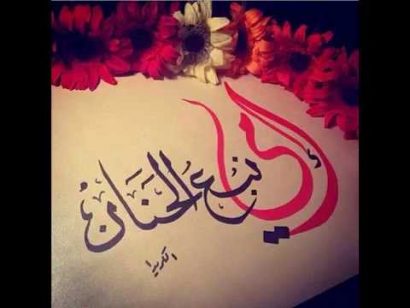 أمي نبع الحنان